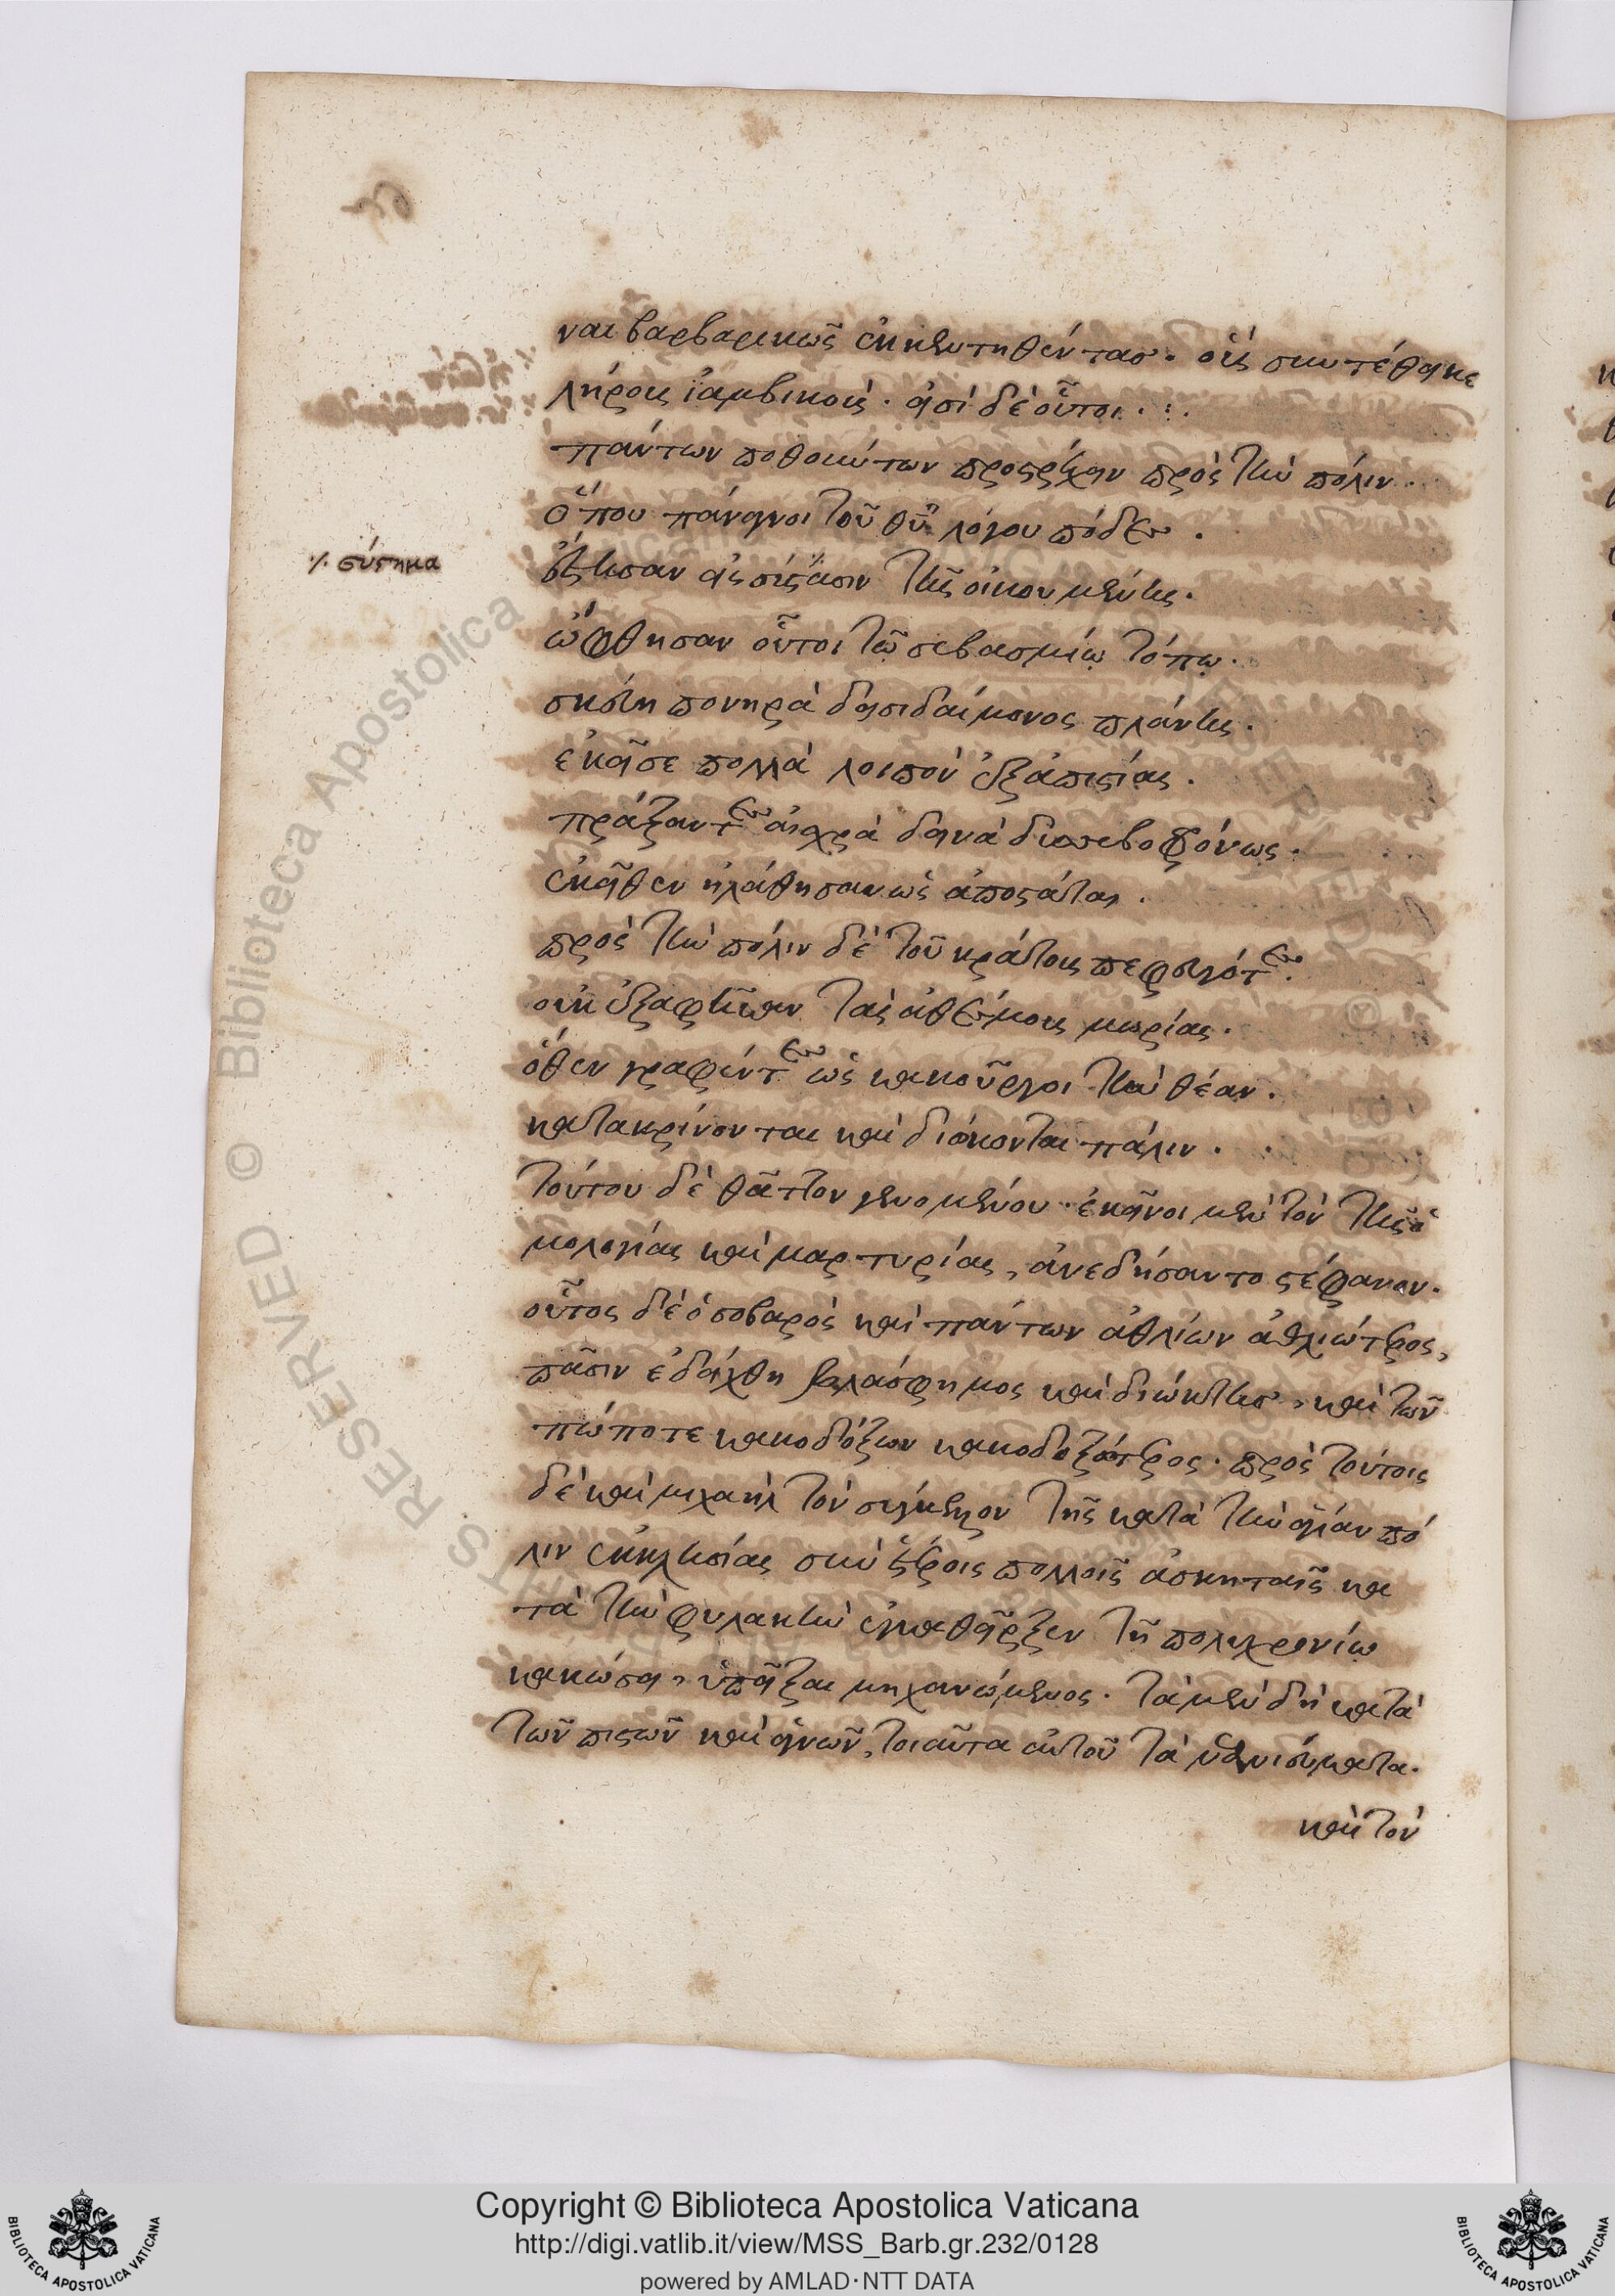 ναι βαρβαρικῶς ἐκκεντηθέντας. οἷς συντέθεικε
λήροις ἰαμβικοῖς. εἰσὶ δὲ οὗτοι .:.
πάντων ποθούντων προστρέχειν πρὸς τὴν πόλιν.
ὅπου πάναγνοι τοῦ θυ λόγου πόδες.
ἔστησαν εἰς σύστασιν τῆς οἰκουμένης.
⁒ σύστημα
ὤφθησαν οὗτοι τῷ σεβασμίῳ τόπῳ.
σκεύη πονηρὰ δεισιδαίμονος πλάνης.
ἐκεῖσε πολλὰ λοιπὸν ἐξ ἀπιστίας.
πράξαντες αἰσχρὰ δεινὰ δυσσεβοφρόνως.
ἐκεῖθεν ἠλάθησαν ὡς ἀποστάται.
πρὸς τὴν πόλιν δὲ τοῦ κράτους πεφευγότες.
οὐκ ἐξαφῆκαν τὰς ἀθέσμους μωρίας.
ὅθεν γραφέντες ὡς κακοῦργοι τὴν θέαν.
κατακρίνονται καὶ διώκονται πάλιν.
τούτου δὲ θᾶττον γενομένου. ἐκεῖνοι μὲν τὸν τῆς ὁ
μολογίας καὶ μαρτυρίας, ἀνεδήσαντο στέφανον.
οὗτος δὲ ὁ σοβαρὸς καὶ πάντων ἀθλίων ἀθλιώτερος,
πᾶσιν ἐδείχθη βλάσφημος καὶ διώκτης, καὶ τῶν
πώποτε κακοδόξων κακοδοξότερος. πρὸς τούτοις
δὲ καὶ μιχαὴλ τὸν σύγκελλον τῆς κατὰ τὴν ἁγίαν πό
λιν ἐκκλησίας σὺν ἑτέροις πολλοῖς ἀσκηταῖς κα
τὰ τὴν φυλακὴν ἐγκαθεῖρξεν τῇ πολυχρονίῳ
κακώσει, ὑπεῖξαι μηχανώμενος. τὰ μὲν δὴ κατὰ
τῶν πιστῶν καὶ ἁγνῶν, τοιαῦτα αὐτοῦ τὰ νεανιεύματα.
καὶ τὸν